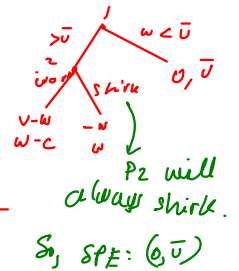 1
>ū w < ū
2
work shirk 0, ū
v-w -w
w-c w
P2 will
always shirk.
So, SPE: (0, ū)